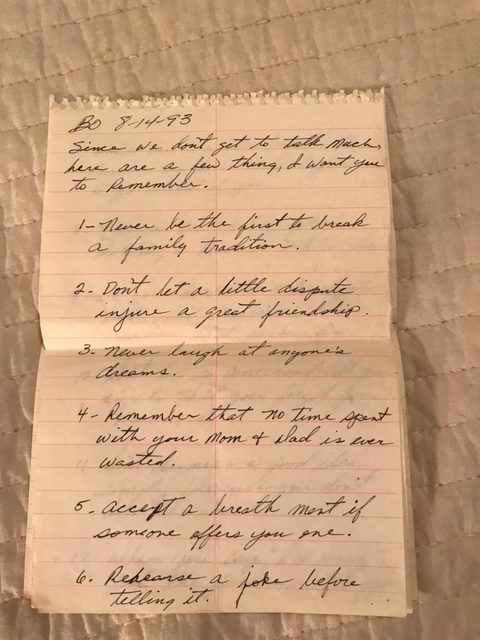 BO 8-14-93
Since we don't get to talk much,
here are a few thing, I want you
to Remember.
1- Never be the first to break
a family tradition.
2. Don't let a little dispute
injure a great friendship.
3- Never laugh at anyone's
dreams.
4- Remember that no time spent
with your Mom & Dad is ever
wasted.
5. Accept a breath mint if
someone offers you one.
6. Rehearse a joke before
telling it.